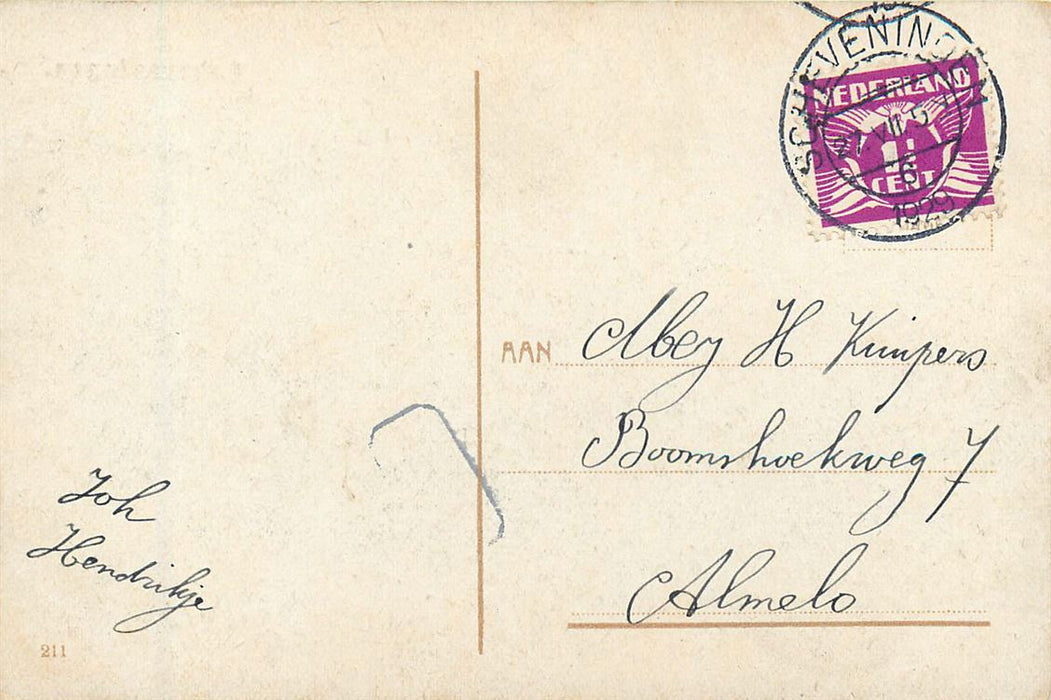 SCHEVENINGEN
21.VII.5
6
1929
NEDERLAND
1½
CENT
AAN Mej H Kuipers
Boomshoekweg 7
Almelo
Joh
Hendrikje
211